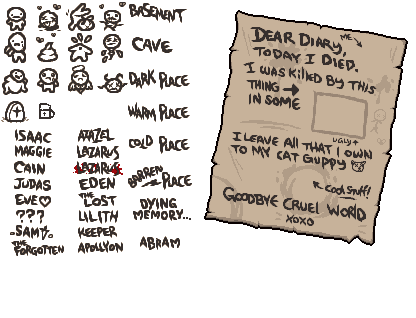 BASEMENT
CAVE
DARK PLACE
WARM PLACE
COLD PLACE
BARREN PLACE
DYING
MEMORY...
ABRAM
ISAAC
MAGGIE
CAIN
JUDAS
EVE♡
???
SAMS
THE
FORGOTTEN
AZAZEL
LAZARUS
LAZARUS
EDEN
THE
LOST
LILITH
KEEPER
APOLLYON
DEAR DIARY,
ME
TODAY I DIED.
I WAS KILLED BY THIS
THING →
IN SOME
UGLY↑
I LEAVE ALL THAT I OWN
TO MY CAT GUPPY
COOL STUFF!
GOODBYE CRUEL WORLD
XOXO